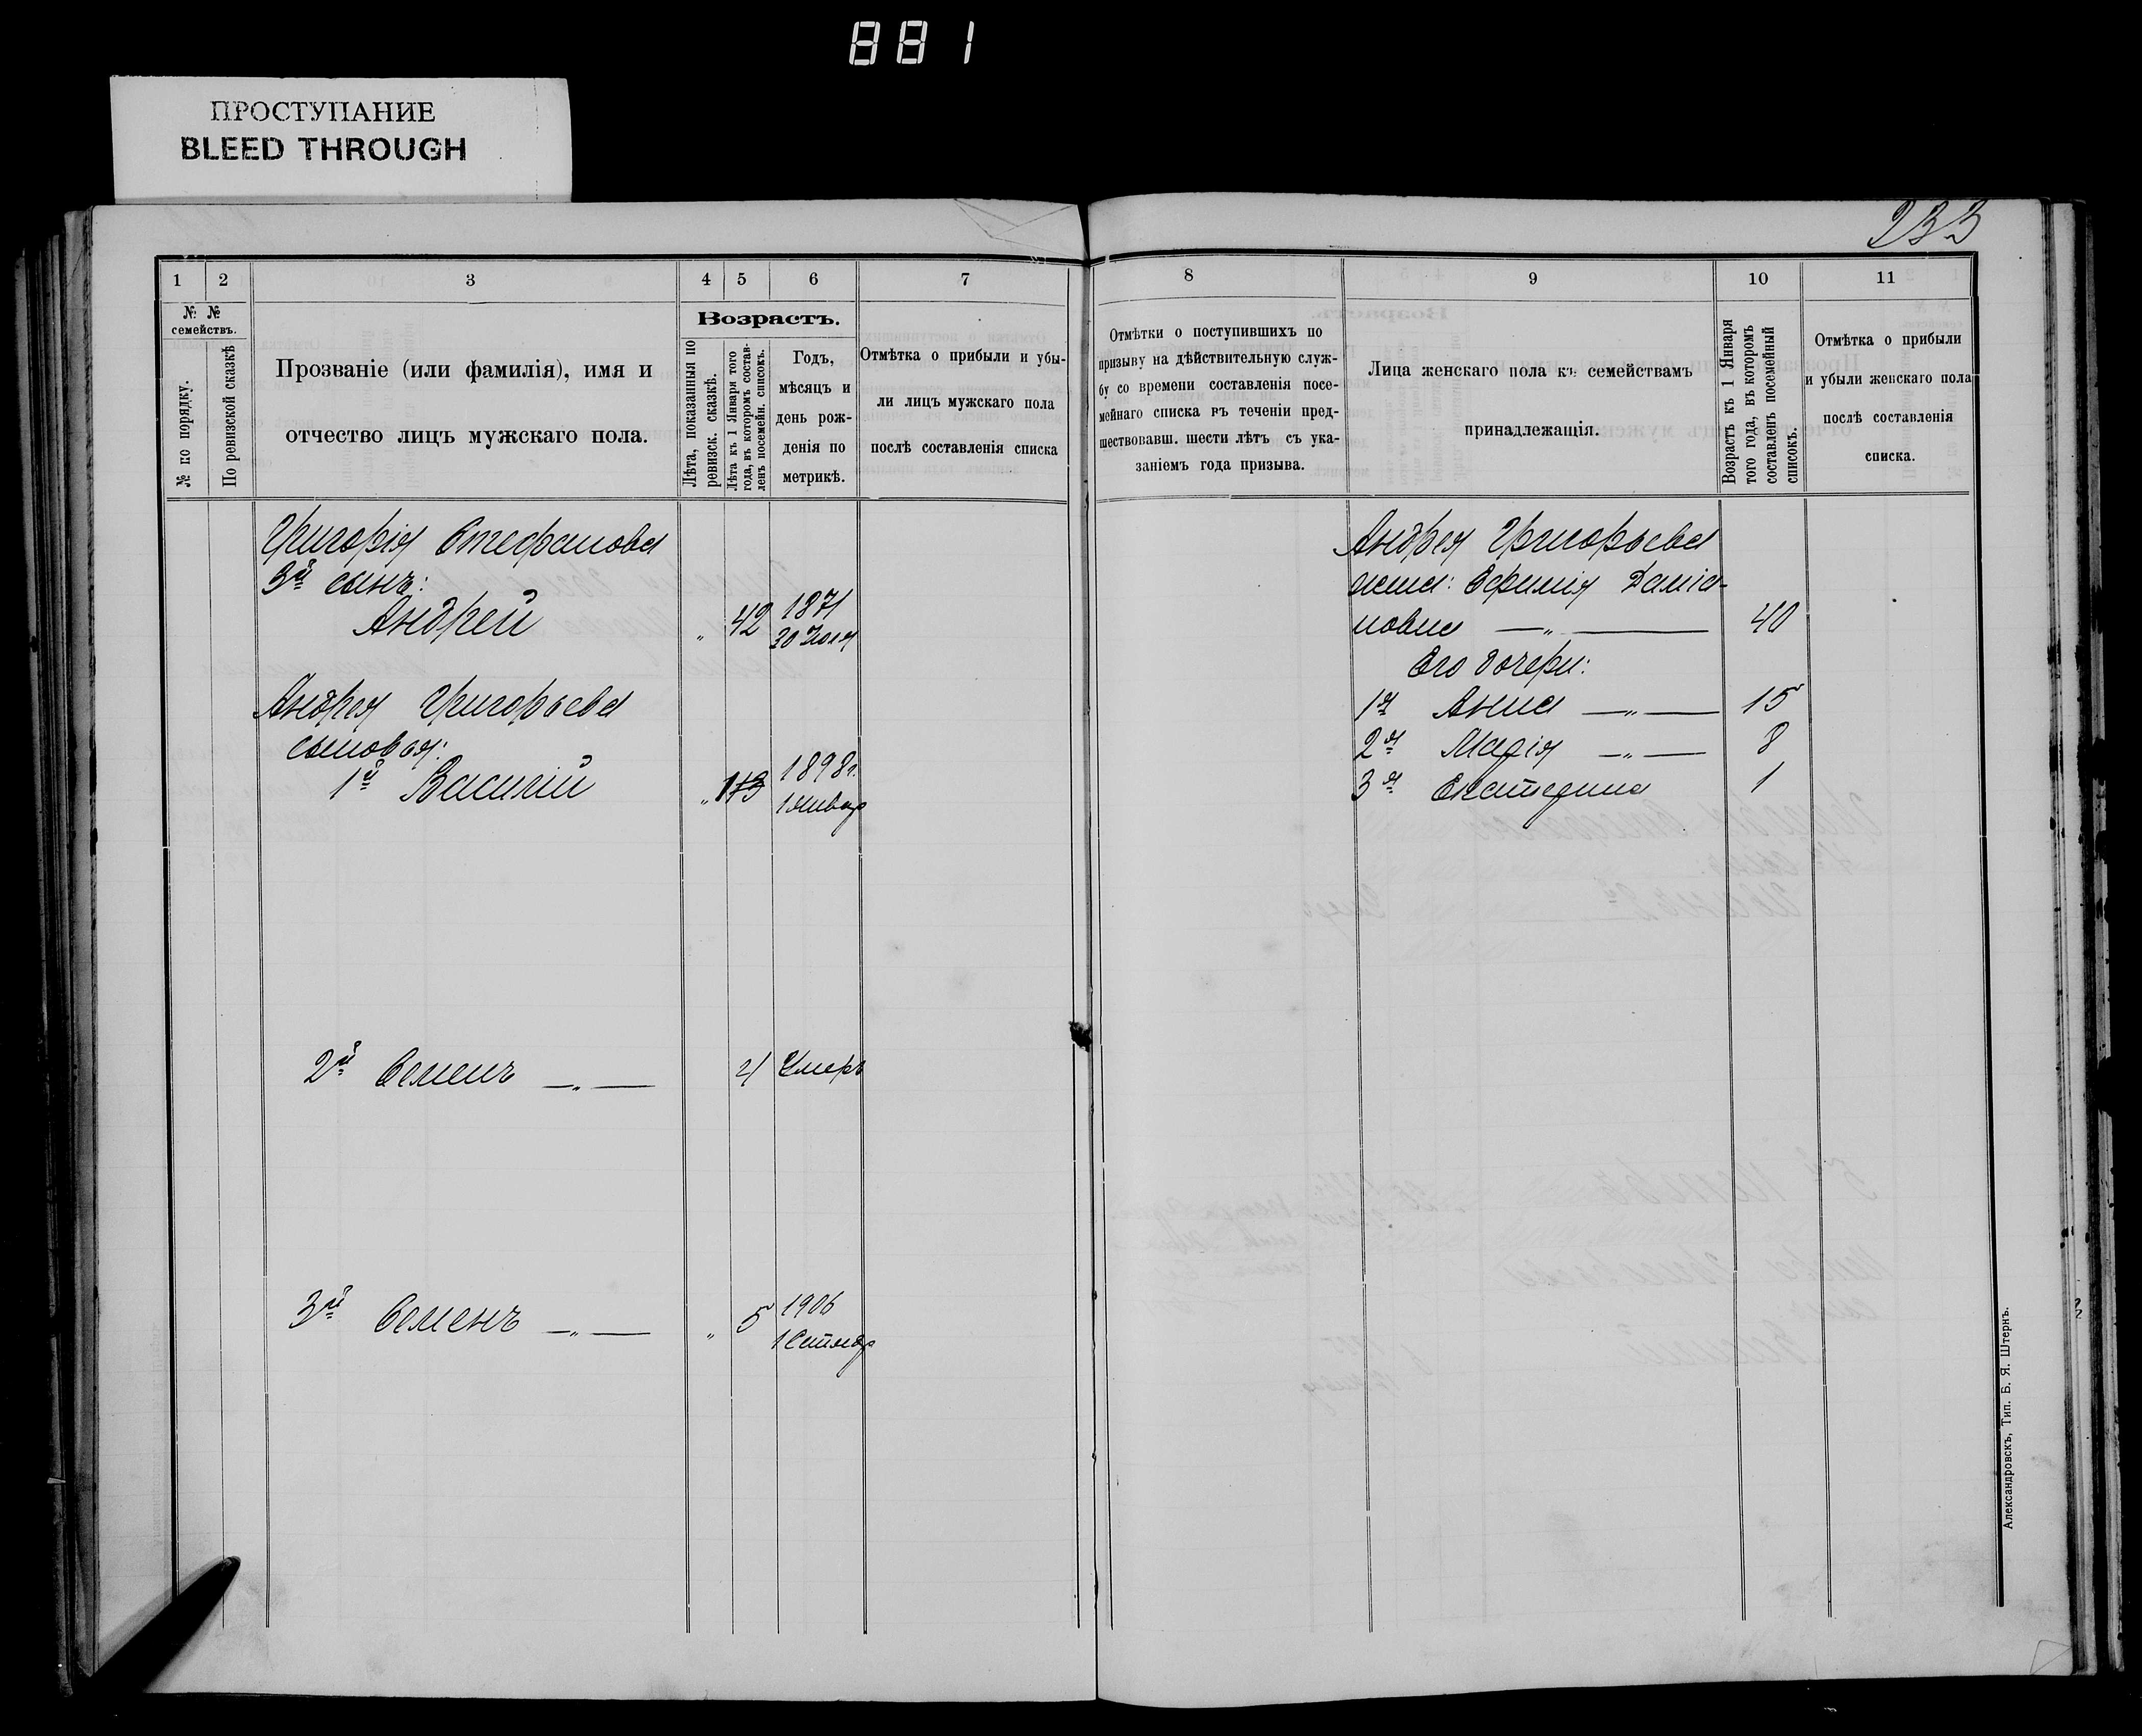 881
ПРОСТУПАНИЕ
BLEED THROUGH
233
1
2
3
4
5
6
7
№ №
семействъ.
№ по порядку.
По ревизской сказкѣ
Прозваніе (или фамилія), имя и
отчество лицъ мужскаго пола.
Возрастъ.
Лѣта, показанныя по
ревизск. сказкѣ.
Лѣта къ 1 Января того
года, въ которомъ состав-
ленъ посемейн. списокъ.
Годъ,
мѣсяцъ и
день рож-
денія по
метрикѣ.
Отмѣтка о прибыли и убы-
ли лицъ мужскаго пола
послѣ составленія списка
Григорія Стефанова
3й сынъ:
Андрей " 42 1871
30 Іюля
Андрея Григорьева
сыновья:
1й Василій " 13 1898 г.
1 Январ
2й Семенъ —"— 4 Умеръ
3й Семенъ —"— " 5 1906
1 Сентяб
8
9
10
11
Отмѣтки о поступившихъ по
призыву на дѣйствительную служ-
бу со времени составленія посе-
мейнаго списка въ теченіи пред-
шествовавш. шести лѣтъ съ ука-
заніемъ года призыва.
Лица женскаго пола къ семействамъ
принадлежащія.
Возрастъ къ 1 Января
того года, въ которомъ
составленъ посемейный
списокъ.
Отмѣтка о прибыли
и убыли женскаго пола
послѣ составленія
списка.
Андрея Григорьева
жена: Ефимія Даміа-
новна —"— 40
Его дочери:
1я Анна —"— 15
2я Марія —"— 8
3я Екатерина 1
Александровскъ, Тип. Б. Я. Штернъ.